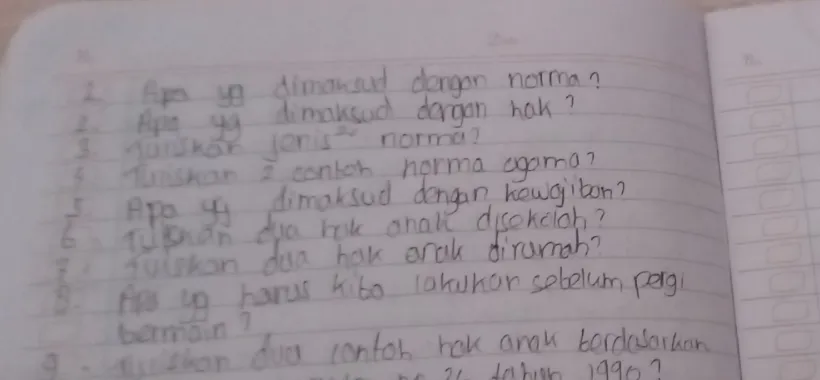 1. Apa yg dimaksud dengan norma?
2. Apa yg dimaksud dengan hak?
3. Tuliskan jenis²" norma?
4. Tuliskan 2 contoh norma agama?
5. Apa yg dimaksud dengan kewajiban?
6. Tuliskan dua hak anak disekolah?
7. Tuliskan dua hak anak dirumah?
8. Apa yg harus kita lakukan sebelum pergi
bermain?
9. Tuliskan dua contoh hak anak berdasarkan
tahun 1990?